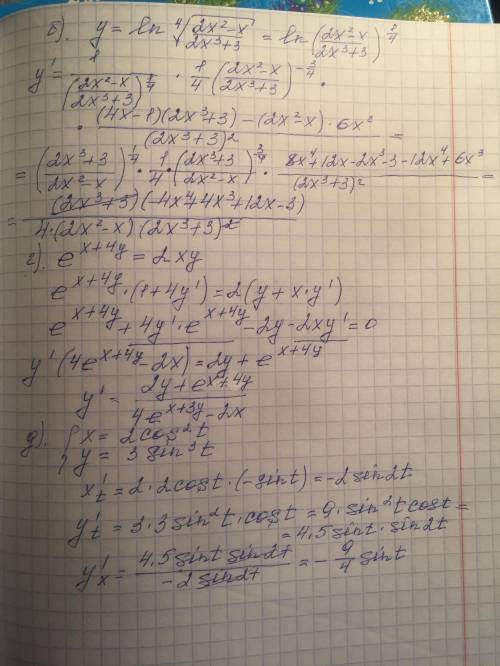 б). y = ln ⁴√((2x²-x)/(2x³+3)) = ln ((2x²-x)/(2x³+3))^(1/4)
y' = 1/((2x²-x)/(2x³+3))^(1/4) · 1/4 ((2x²-x)/(2x³+3))^(-3/4) ·
· ((4x-1)(2x³+3) - (2x²-x)·6x²)/(2x³+3)² =
= ((2x³+3)/(2x²-x))^(1/4) · 1/4 · ((2x³+3)/(2x²-x))^(3/4) · (8x⁴+12x-2x³-3-12x⁴+6x³)/(2x³+3)² =
= ((2x³+3)(-4x⁴+4x³+12x-3))/(4·(2x²-x)(2x³+3)²)
г). e^(x+4y) = 2xy
e^(x+4y)·(1+4y') = 2(y+x·y')
e^(x+4y) + 4y'·e^(x+4y) - 2y - 2xy' = 0
y'(4e^(x+4y) - 2x) = 2y + e^(x+4y)
y' = (2y+e^(x+4y))/(4e^(x+3y) - 2x)
д). { x = 2cos²t
y = 3 sin³t
x't = 2·2cost·(-sint) = -2sin2t
y't = 3·3sin²t·cost = 9·sin²t cost =
= 4.5sint·sin2t
y'x = (4.5sint sin2t)/(-2sin2t) = -9/4 sint